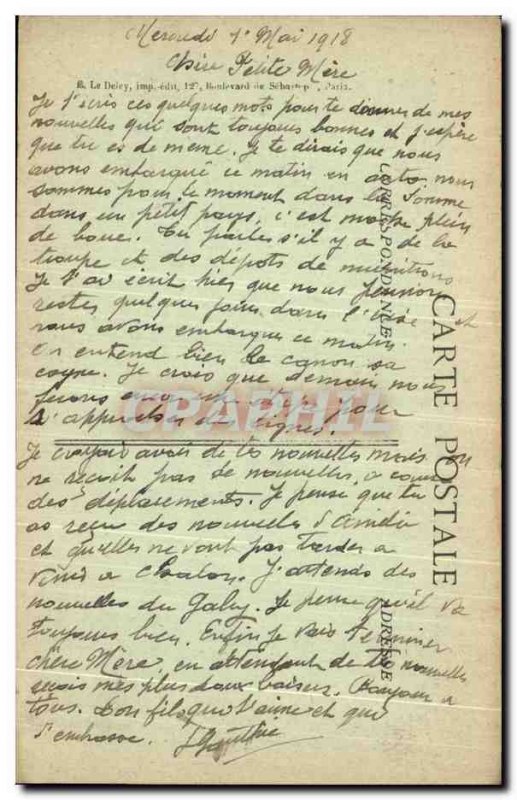 Mercredi 1er Mai 1918
Chère Petite Mère
E. Le Deley, imp.-édit, 127, Boulevard de Sébastop , Paris.
Je t'écris ces quelques mots pour te donner de mes
nouvelles qui sont toujours bonnes et j'espère
que tu es de meme. Je te dirais que nous
avons embarqué ce matin en auto nous
sommes pour le moment dans la Somme
dans un petit pays, c'est moche plein
de boue. Tu parles s'il y a de la
troupe et des depots de munitions
Je t'ai écrit hier que nous pensions
rester quelques jours dans l'oise et
nous avons embarqué ce matin.
On entend bien le canon sa
cogne. Je crois que demain nous
ferons encore un pour
s'approcher des lignes.
Je croyais avoir de tes nouvelles mais on
ne recoit pas de nouvelles, a cause
des deplacements. Je pense que tu
as recu des nouvelles d'Amélie
et qu'elles ne vont pas tarder a
venir a Chalon. J'attends des
nouvelles du Gaby. Je pense qu'il va
toujours bien. Enfin je vais terminer
chère Mère, en attendant de tes nouvelles
recois mes plus doux baisers. Bonjour a
tous. Ton fils que t'aime et que
t'embrasse.
CARTE POSTALE
CORRESPONDANCE
ADRESSE
CARPHIL